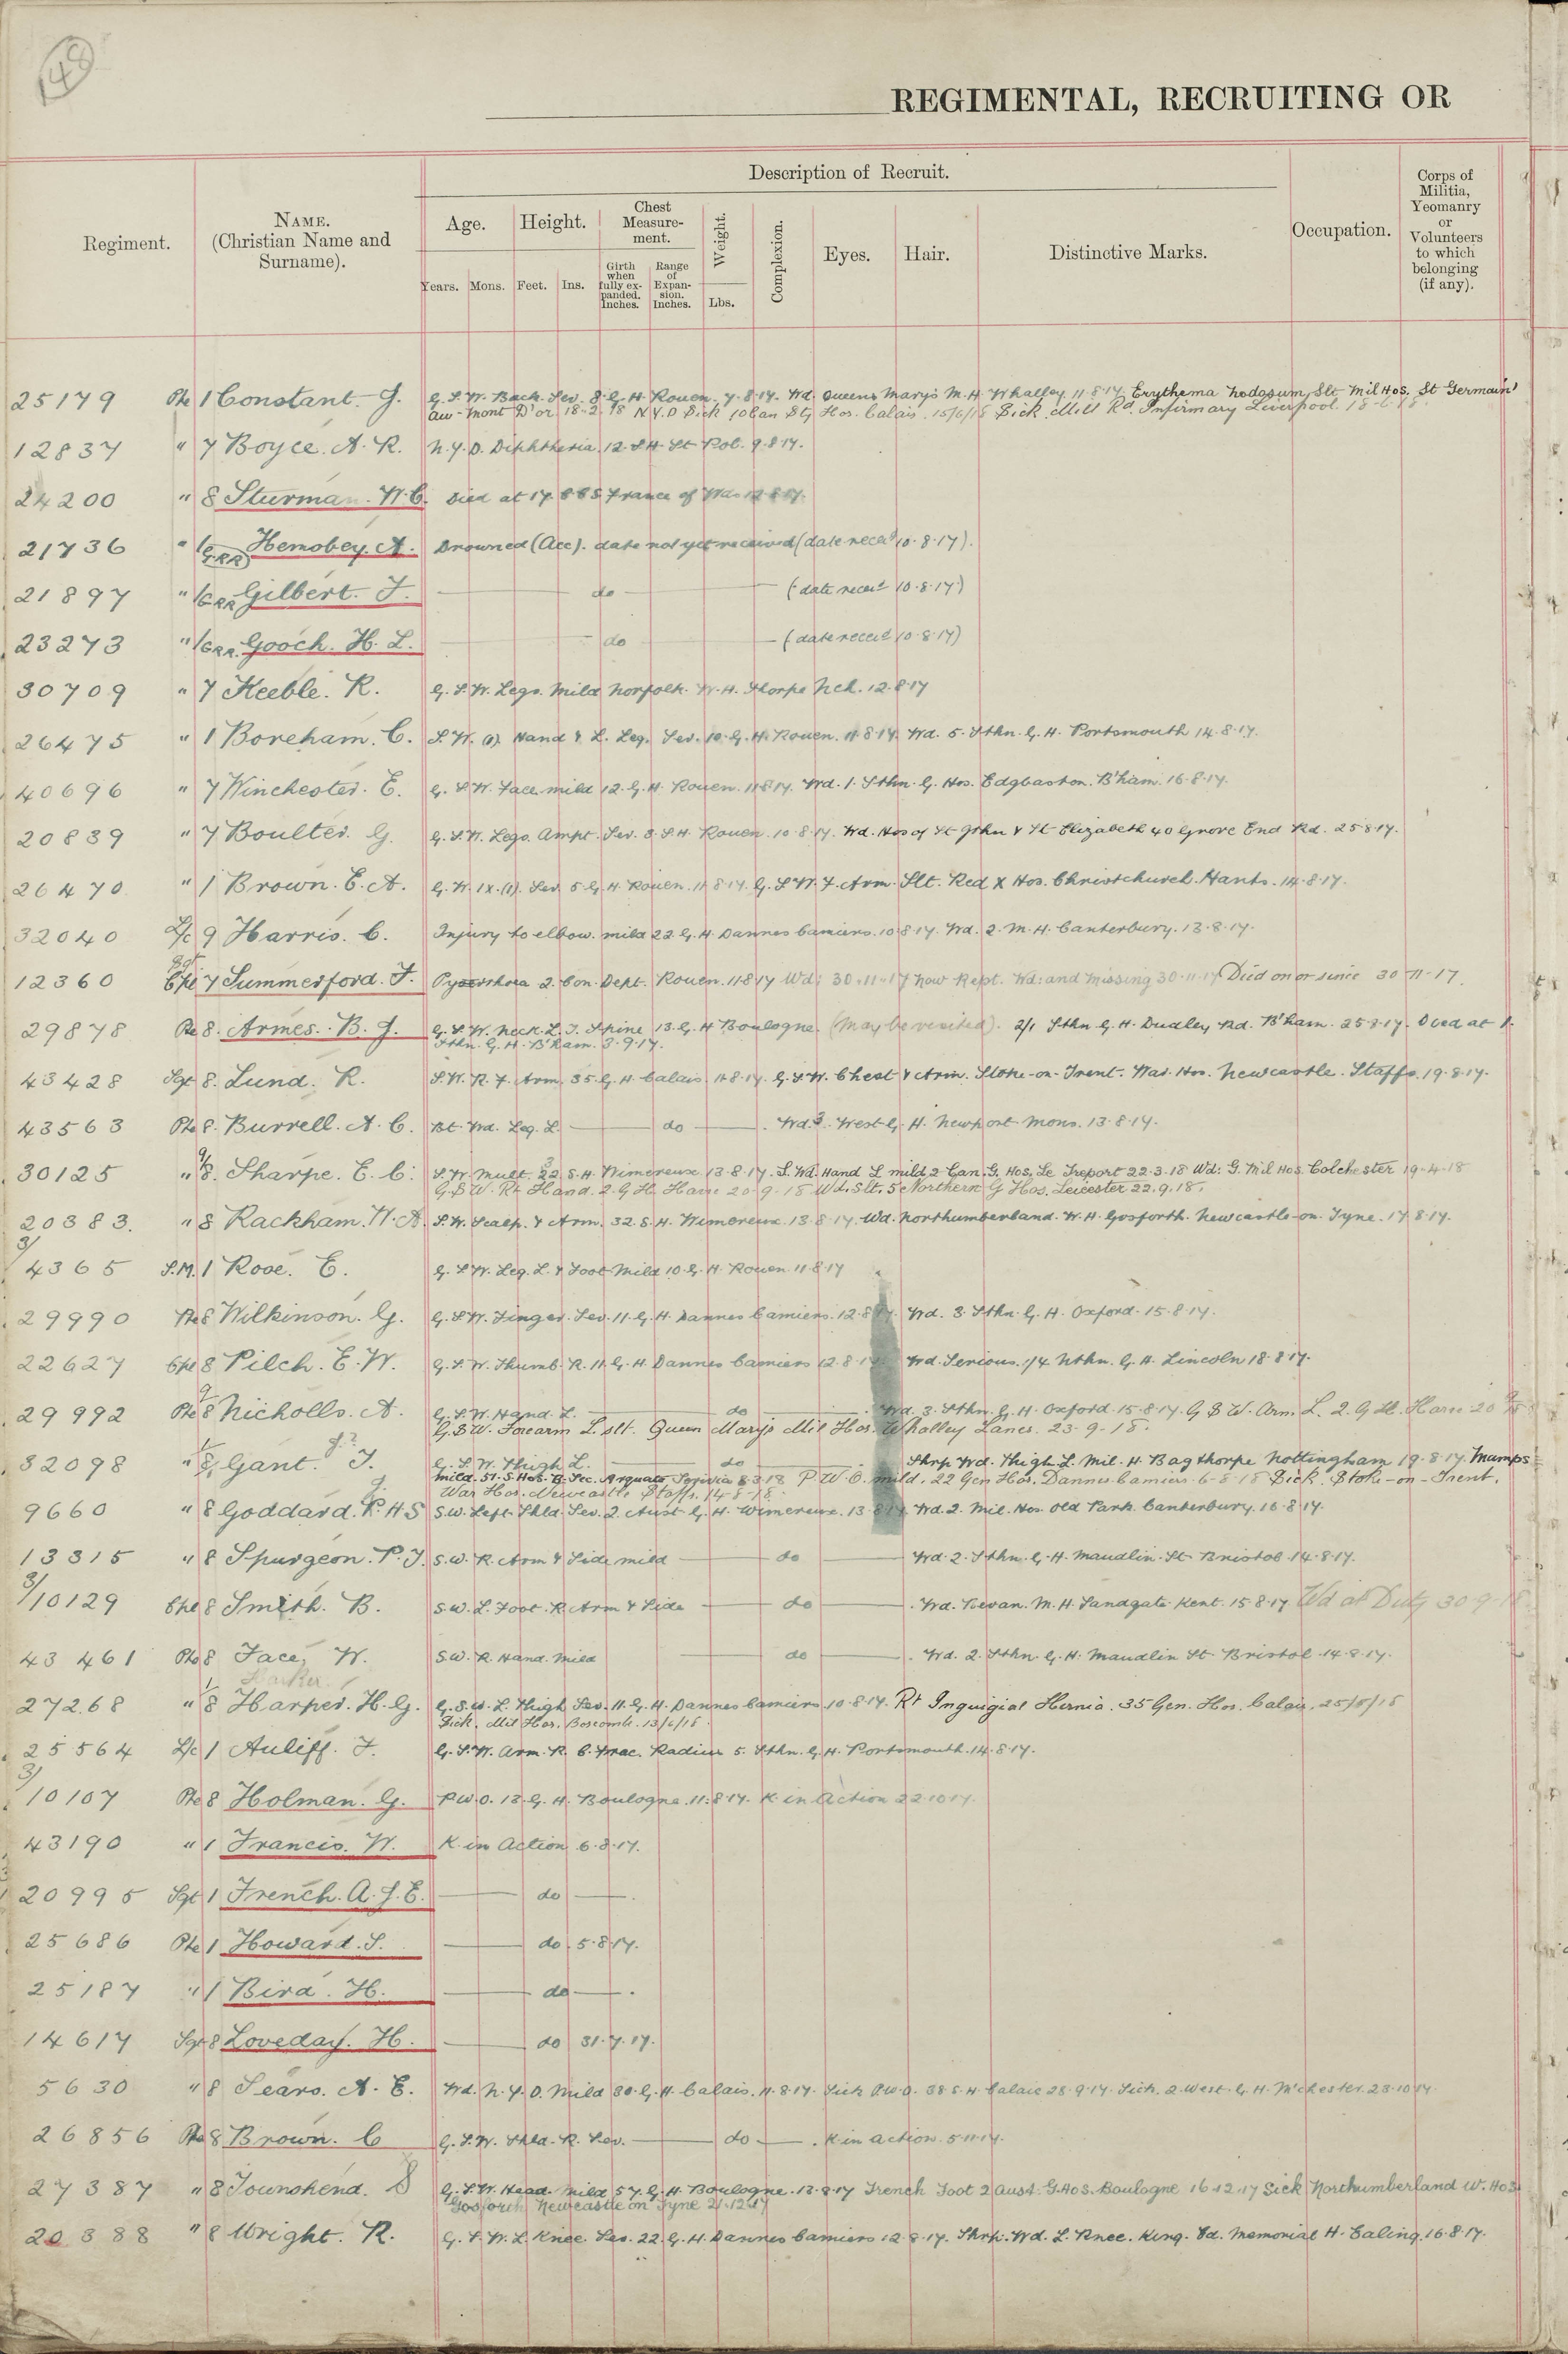 148
REGIMENTAL, RECRUITING OR
Regiment.
NAME.
(Christian Name and
Surname).
Description of Recruit.
Age.
Years. Mons.
Height.
Feet. Ins.
Chest
Measure-
ment.
Girth
when
fully ex-
panded.
Inches.
Range
of
Expan-
sion.
Inches.
Weight.
Lbs.
Complexion.
Eyes.
Hair.
Distinctive Marks.
Occupation.
Corps of
Militia,
Yeomanry
or
Volunteers
to which
belonging
(if any).
25179 Pte 1 Constant. J. G.S.W. Back. Sev. 8. G.H. Rouen. 7.8.17. Wd. Queens Mary's M.H. Whalley 11.8.17. Erythema Nodosum, Slt Mil Hos. St Germain
au-Mont D'or. 18.2.18 N.Y.D Sick 10 Can Sty Hos. Calais. 15/6/18 Sick Mill Rd. Infirmary Liverpool. 18.6.18.
12837 " 7 Boyce. A.R. N.Y.D. Diphtheria. 12. S.H. St Pol. 9.8.17.
24200 " 8 Sturman. W.C. Died at 17 CCS France of Wds 12.8.17.
21736 " 1/GRR Hemobey. A. Drowned (Acc). date not yet received (date recd 10.8.17).
21897 " 1/GRR Gilbert. F. do (date recd 10.8.17)
23273 " 1/GRR. Gooch. H.L. do (date recd 10.8.17)
30709 " 7 Keeble. R. G.S.W. Legs. Mild Norfolk. W.H. Thorpe Nch. 12.8.17
26475 " 1 Boreham. C. S.W. (1) Hand & L. Leg. Sev. 10. G.H. Rouen. 11.8.17. Wd. 5. Sthn. G.H. Portsmouth 14.8.17.
40696 " 7 Winchester. E. G.S.W. Face mild 12. G.H. Rouen. 11.8.17. Wd. 1. Sthn. G. Hos. Edgbaston. B'ham. 16.8.17.
20839 " 7 Boulter. G. G.S.W. Legs. Ampt. Sev. 3. S.H. Rouen. 10.8.17. Wd. Hos of St John & St Elizabeth 40 Grove End Rd. 25.8.17.
26470 " 1 Brown. E.A. G.W. 1x.(1). Sev. 5 G.H. Rouen. 11.8.17. G.S.W. F. Arm. Slt. Red X Hos. Christchurch. Hants. 14.8.17.
32040 L/c 9 Harris. C. Injury to elbow. mild 22 G.H. Dannes Camiers. 10.8.17. Wd. 2. M.H. Canterbury. 13.8.17.
12360 Sgt Cpl 7 Summerford. F. Pyorrhoea 2. Con. Dept. Rouen. 11.8.17 Wd: 30.11.17 now Rept. Wd: and Missing 30.11.17 Died on or since 30-11-17.
29878 Pte 8. Armes. B.J. G.S.W. Neck. L.J. Spine 13. G.H Boulogne. (May be visited). 2/1 Sthn G.H. Dudley Rd. B'ham. 25.8.17. Died at 1.
Sthn. G.H. B'ham. 3.9.17.
43428 Sgt 8. Lund. R. S.W. R.F. Arm. 35. G.H. Calais. 11.8.17. G.S.W. Chest & Arm. Stoke-on-Trent. War. Hos. Newcastle. Staffs. 19.8.17.
43563 Pte 8. Burrell. A.C. Bt. Wd. Leg. L. do Wd. 3. West G.H. Newport. Mons. 13.8.17.
30125 " 9/8. Sharpe. E.C. S.W. Mult. 22. S.H. Wimereux 13.8.17. S.Wd. Hand L mild 2 Can. G. Hos. Le Treport 22.3.18 Wd: G. Mil Hos. Colchester 19.4.18
G.S.W. Rt Hand. 2. G.H. Havre 20-9-18. Wd. Slt. 5 Northern G Hos. Leicester 22.9.18.
20383. " 8 Rackham. W.A. S.W. Scalp. & Arm. 32. S.H. Wimereux. 13.8.17. Wd. Northumberland. W.H. Gosforth. Newcastle-on-Tyne. 17.8.17.
3/4365 S.M. 1 Rose. E. G.S.W. Leg. L. & Foot Mild 10. G.H. Rouen. 11.8.17
29990 Pte 8 Wilkinson. G. G.S.W. Finger. Sev. 11. G.H. Dannes Camiers. 12.8.17. Wd. 3. Sthn. G.H. Oxford. 15.8.17.
22627 Cpl 8 Pilch. E.W. G.S.W. Thumb. R. 11. G.H. Dannes Camiers 12.8.17. Wd. Serious. 1/4 Nthn. G.H. Lincoln 18.8.17.
29992 Pte 9/8 Nicholls. A. G.S.W. Hand. L. do Wd. 3. Sthn. G.H. Oxford. 15.8.17. G S W. Arm. L. 2. G.H. Havre 20 9/18
G.S.W. Forearm L. slt. Queen Mary's Mil Hos. Whalley Lancs. 23-9-18.
32098 " 1/8. Gant. J? J. G.S.W. Thigh L. do Shrp. Wd. Thigh L. Mil. H. Bagthorpe Nottingham 19.8.17. Mumps
mild. 51. S. Hos. B. Sec. Arquata Scrivia 8.3.18 P.W.O. mild. 22 Gen Hos. Dannes Camiers. 6-8-18 Sick. Stoke-on-Trent.
War Hos. Newcastle Staffs. 14-8-18.
9660 " 8 Goddard. R.H.S S.W. Left. Shld. Sev. 2. Aust. G.H. Wimereux. 13.8.17. Wd. 2. Mil. Hos. Old Park. Canterbury. 16.8.17.
13315 " 8 Spurgeon. P.J. S.W. R. Arm & Side mild do Wd. 2. Sthn. G.H. Maudlin. St. Bristol. 14.8.17.
3/10129 Cpl 8 Smith. B. S.W. L. Foot. R. Arm & Side do Wd. Bevan. M.H. Sandgate. Kent. 15.8.17 Wd at Duty 30-9-18
43461 Pte 8 Face, W. S.W. R. Hand. Mild do Wd. 2. Sthn. G.H. Maudlin St. Bristol. 14.8.17.
Harker.
27268 " 1/8 Harper. H.G. G.S.W. L. Thigh Sev. 11. G.H. Dannes Camiers 10.8.17. Rt Inguigial Hernia. 35 Gen. Hos. Calais. 25/5/18
Sick. Mil Hos. Boscomb. 13/6/18.
25564 L/c 1 Auliff. F. G.S.W. Arm. R. C. Frac. Radius 5. Sthn. G.H. Portsmouth. 14.8.17.
3/10107 Pte 8 Holman. G. P.W.O. 13. G.H. Boulogne. 11.8.17. K. in Action 22.10.17.
43190 " 1 Francis. W. K. in Action 6.8.17.
20995 Sgt 1 French. A.J.E. do
25686 Pte 1 Howard. S. do 5.8.17.
25187 " 1 Bird. H. do
14617 Sgt 8 Loveday. H. do 31.7.17.
5630 " 8 Sears. A.E. Wd. N.Y.D. Mild 30. G.H. Calais. 11.8.17. Sick P.W.O. 38 S.H. Calais 28.9.17. Sick. 2. West. G.H. M'chester. 23.10.17.
26856 Pte 8 Brown. C G.S.W. Shld. R. Sev. do K in action. 5.11.17.
27387 " 8 Townshend. S G.S.W. Head. Mild 57. G.H. Boulogne. 13.8.17 Trench Foot 2 Aust. G. Hos. Boulogne 16.12.17 Sick Northumberland W. Hos
Gosforth Newcastle on Tyne 21.12.17
20388 " 8 Wright. R. G.S.W. L. Knee. Sev. 22. G.H. Dannes Camiers 12.8.17. Shrp. Wd. L. Knee. King. Ed. Memorial H. Ealing. 16.8.17.